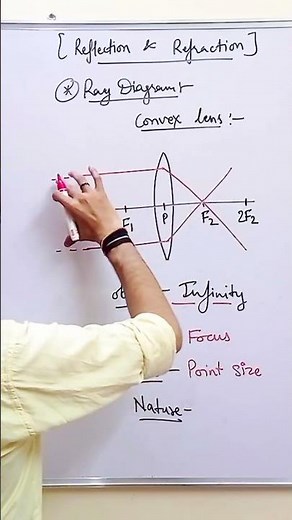 [ Reflection & Refraction ]
* Ray Diagram
Convex lens :-
F₁ P F₂ 2F₂
Infinity
Focus
Point size
Nature -